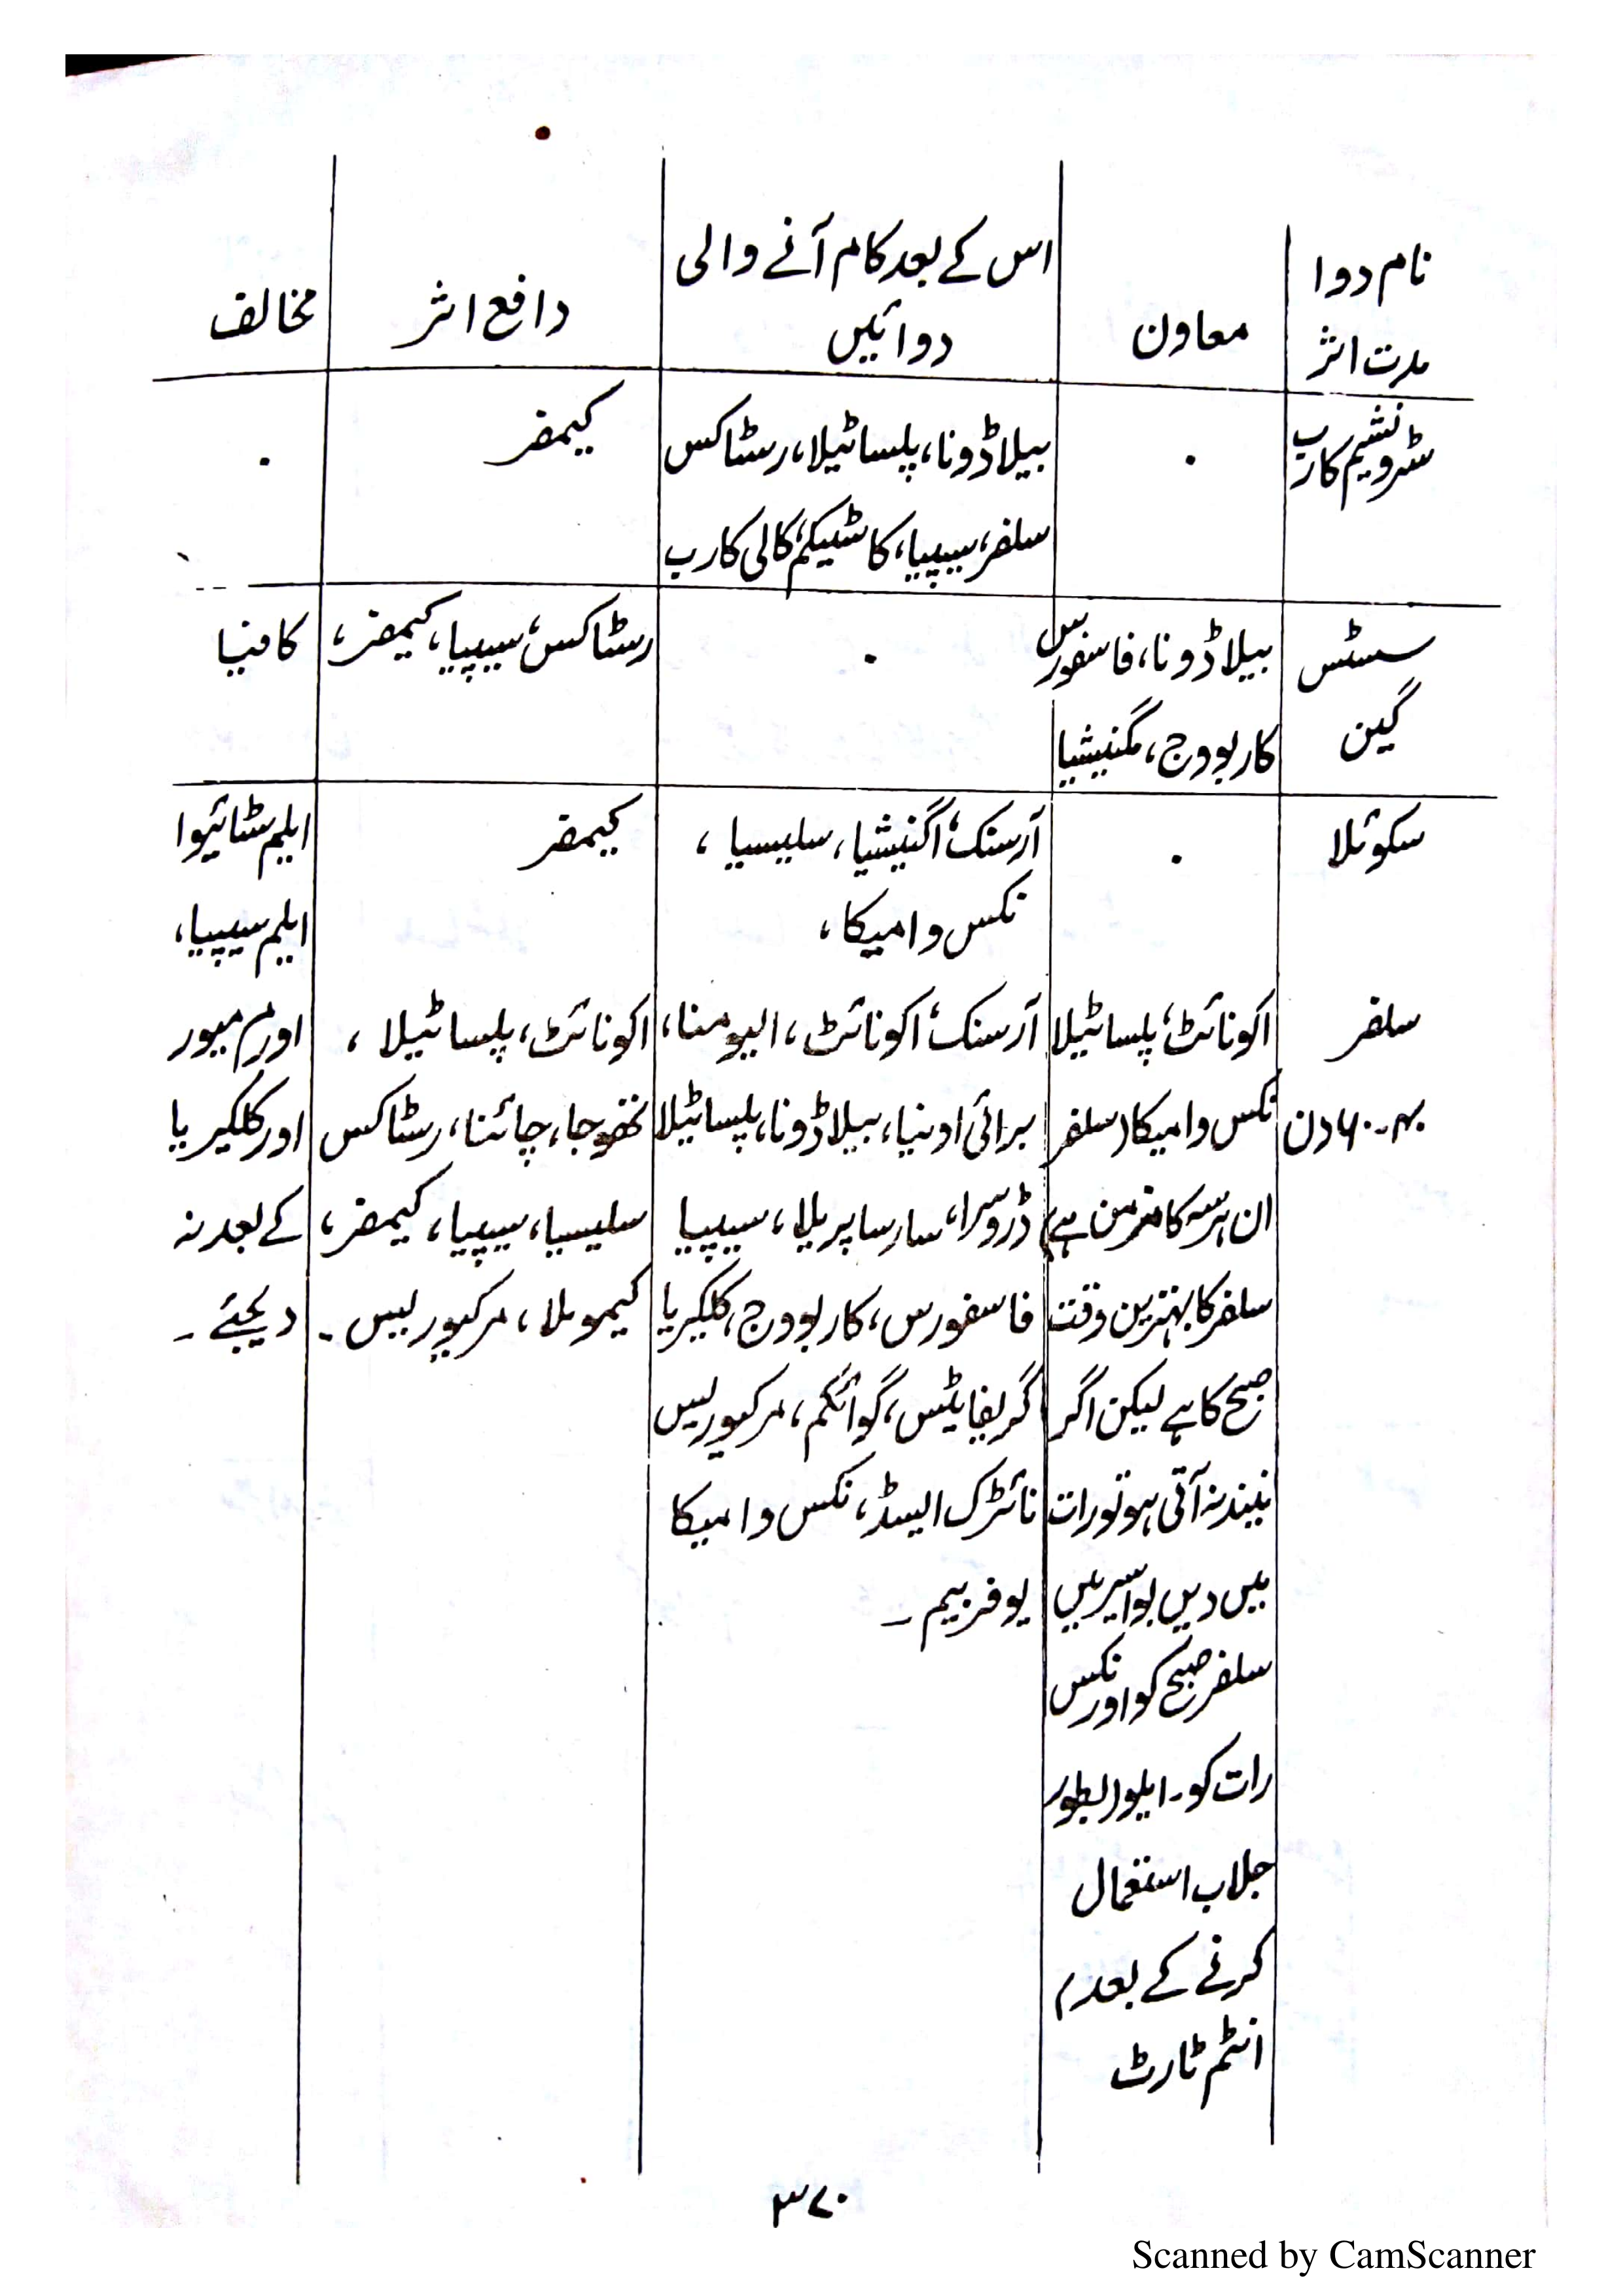 نام دوا
مدت اثر
معاون
اس کے بعد کام آنے والی
دوائیں
دافع اثر
مخالف
سٹرونشیم کارب
.
بیلاڈونا، پلساٹیلا، رسٹاکس
سلفر، سیپیا، کاسٹیکم، کالی کارب
کیمفر
.
سسٹس
گین
بیلاڈونا، فاسفورس
کاربووج، مگنیشیا
.
رسٹاکس، سیپیا، کیمفر،
کافیا
سکوئلا
.
آرسنک، اگنیشیا، سلیسیا،
نکس وامیکا،
کیمفر
ایلیم سٹائیوا
ایلیم سیپیا،
سلفر
۴۰-۶۰ دن
اکونائٹ، پلساٹیلا
نکس وامیکا (سلفر
ان ہرسہ کا مزمن ہے)
سلفر کا بہترین وقت
صبح کا ہے لیکن اگر
نیند نہ آتی ہو تو رات
میں دیں بواسیر میں
سلفر صبح کو اور نکس
رات کو۔ ایلوا بطور
جلاب استعمال
کرنے کے بعد
انٹم ٹارٹ
آرسنک، اکونائٹ، الیومنا،
برائی اونیا، بیلاڈونا، پلساٹیلا
ڈروسرا، سارساپریلا، سیپیا
فاسفورس، کاربووج، کلکیریا
گریفایٹس، گوائکم، مرکیوریس
نائٹرک ایسڈ، نکس وامیکا
یوفربیم۔
اکونائٹ، پلساٹیلا،
تھوجا، چائنا، رسٹاکس
سلیسیا، سیپیا، کیمفر،
کیموملا، مرکیوریس۔
اورم میور
اور کلکیریا
کے بعد نہ
دیجئے۔
۳۷۰
Scanned by CamScanner